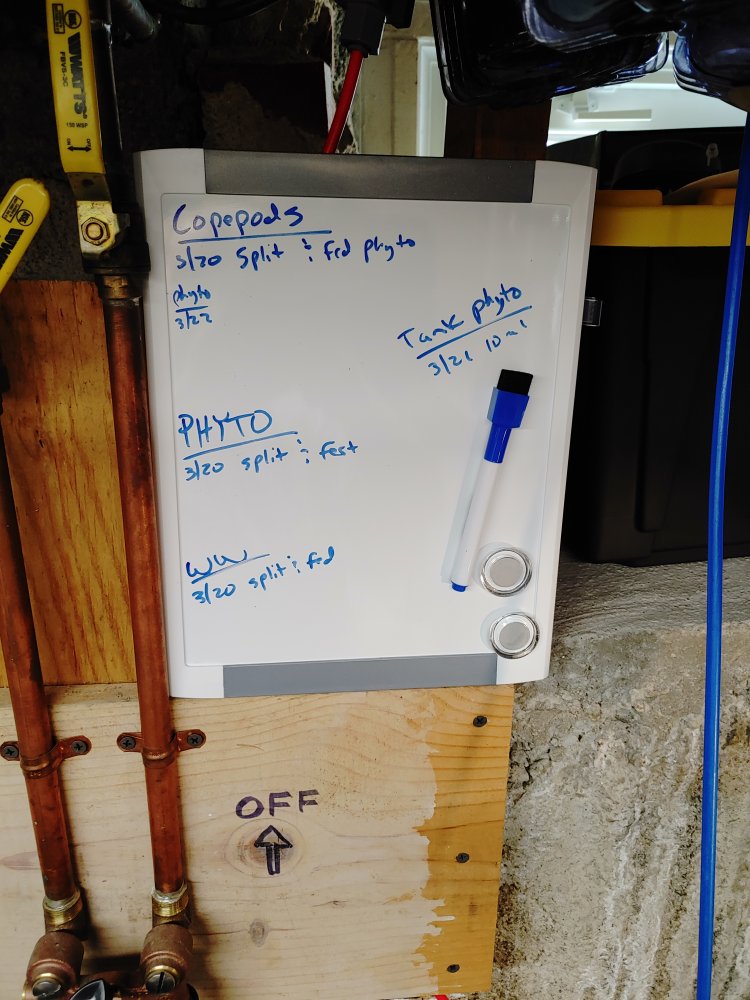 WATTS
FBVS-3C
150 WSP
OFF
ON
Copepods
3/20 Split & Fed phyto
phyto
3/22
Tank phyto
3/21 10 ml
PHYTO
3/20 split & Fert
WW
3/20 split & fed
OFF